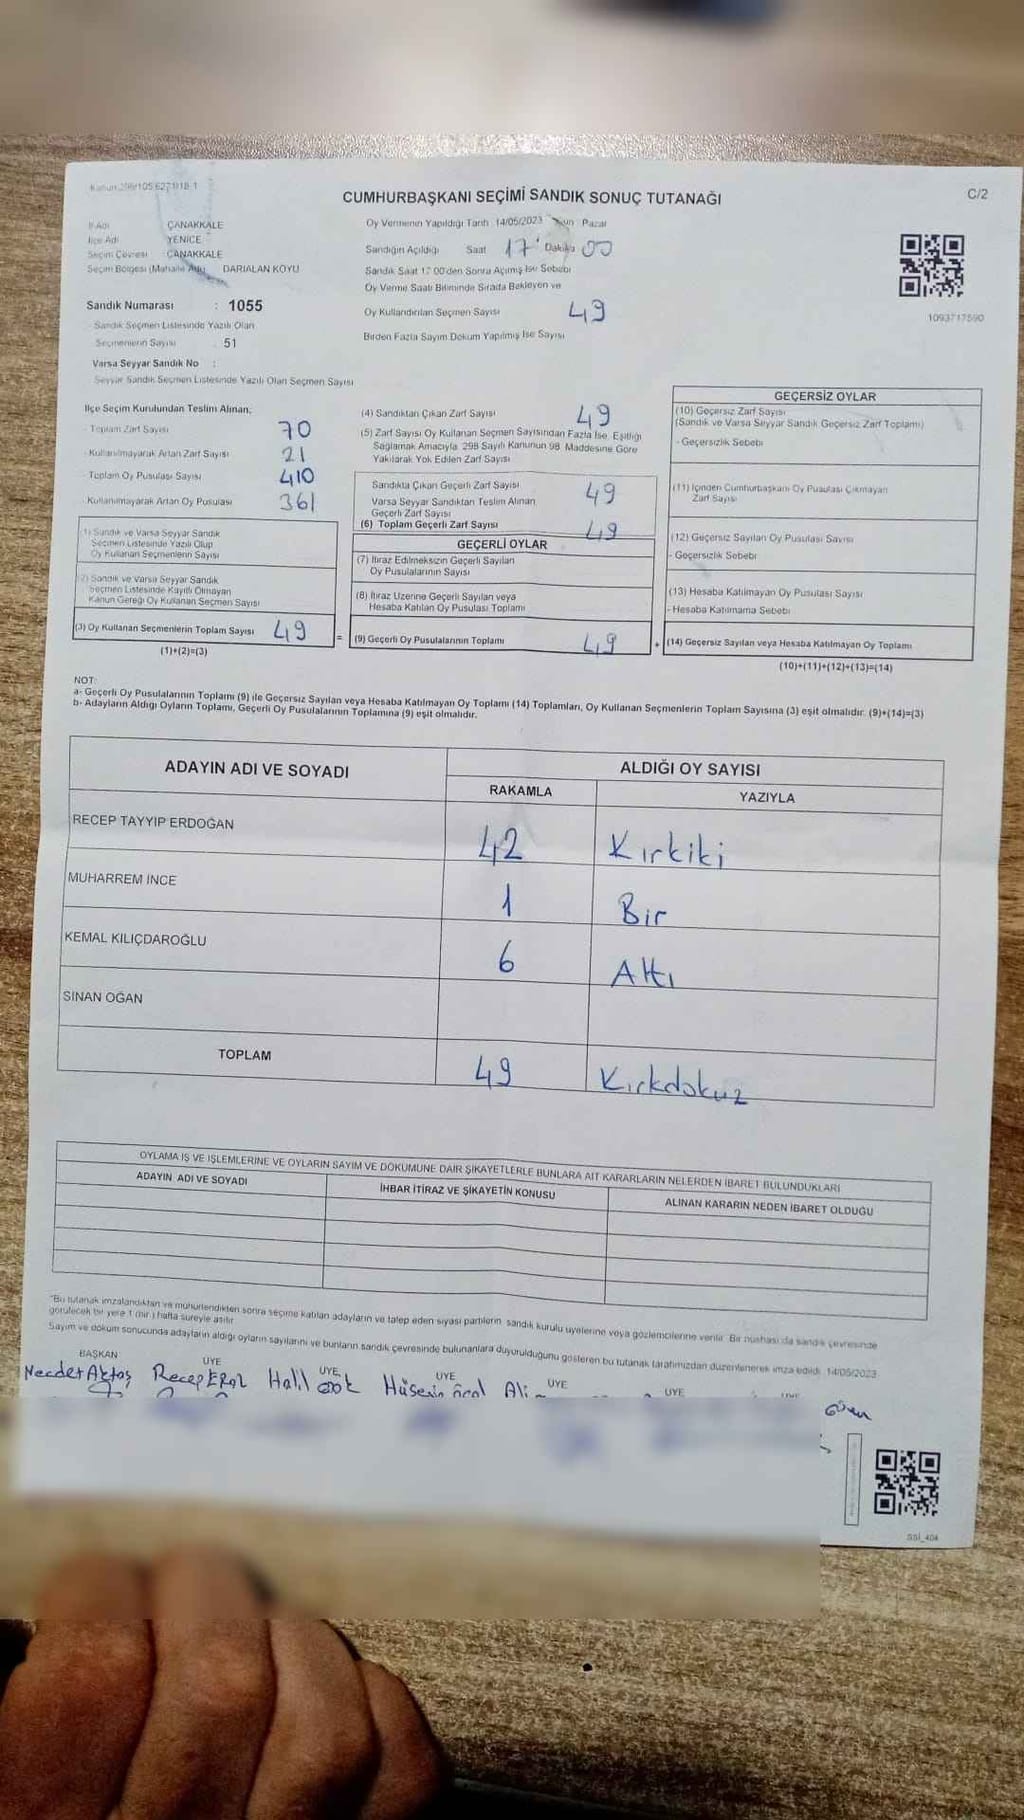 CUMHURBAŞKANI SEÇİMİ SANDIK SONUÇ TUTANAĞI
C/2
İl Adı ÇANAKKALE
İlçe Adı YENİCE
Seçim Çevresi ÇANAKKALE
Seçim Bölgesi (Mahalle Adı) DARIALAN KÖYÜ
Sandık Numarası : 1055
Sandık Seçmen Listesinde Yazılı Olan
Seçmenlerin Sayısı 51
Varsa Seyyar Sandık No :
Seyyar Sandık Seçmen Listesinde Yazılı Olan Seçmen Sayısı
Oy Vermenin Yapıldığı Tarih 14/05/2023 Pazar
Sandığın Açıldığı Saat 17 Dakika 00
Sandık Saat 17 00'den Sonra Açılmış İse Sebebi
Oy Verme Saati Bitiminde Sırada Bekleyen ve
Oy Kullandırılan Seçmen Sayısı 49
Birden Fazla Sayım Döküm Yapılmış İse Sayısı
1093717590
İlçe Seçim Kurulundan Teslim Alınan;
- Toplam Zarf Sayısı 70
- Kullanılmayarak Artan Zarf Sayısı 21
- Toplam Oy Pusulası Sayısı 410
- Kullanılmayarak Artan Oy Pusulası 361
(1) Sandık ve Varsa Seyyar Sandık
Seçmen Listesinde Yazılı Olup
Oy Kullanan Seçmenlerin Sayısı
(2) Sandık ve Varsa Seyyar Sandık
Seçmen Listesinde Kayıtlı Olmayan
Kanun Gereği Oy Kullanan Seçmen Sayısı
(3) Oy Kullanan Seçmenlerin Toplam Sayısı 49
(1)+(2)=(3)
=
(4) Sandıktan Çıkan Zarf Sayısı 49
(5) Zarf Sayısı Oy Kullanan Seçmen Sayısından Fazla İse Eşitliği
Sağlamak Amacıyla 298 Sayılı Kanunun 98 Maddesine Göre
Yakılarak Yok Edilen Zarf Sayısı
Sandıkta Çıkan Geçerli Zarf Sayısı 49
Varsa Seyyar Sandıktan Teslim Alınan
Geçerli Zarf Sayısı
(6) Toplam Geçerli Zarf Sayısı 49
GEÇERLİ OYLAR
(7) İtiraz Edilmeksizin Geçerli Sayılan
Oy Pusulalarının Sayısı
(8) İtiraz Üzerine Geçerli Sayılan veya
Hesaba Katılan Oy Pusulası Toplamı
(9) Geçerli Oy Pusulalarının Toplamı 49
+
GEÇERSİZ OYLAR
(10) Geçersiz Zarf Sayısı
(Sandık ve Varsa Seyyar Sandık Geçersiz Zarf Toplamı)
- Geçersizlik Sebebi
(11) İçinden Cumhurbaşkanı Oy Pusulası Çıkmayan
Zarf Sayısı
(12) Geçersiz Sayılan Oy Pusulası Sayısı
- Geçersizlik Sebebi
(13) Hesaba Katılmayan Oy Pusulası Sayısı
- Hesaba Katılmama Sebebi
(14) Geçersiz Sayılan veya Hesaba Katılmayan Oy Toplamı
(10)+(11)+(12)+(13)=(14)
NOT:
a- Geçerli Oy Pusulalarının Toplamı (9) ile Geçersiz Sayılan veya Hesaba Katılmayan Oy Toplamı (14) Toplamları, Oy Kullanan Seçmenlerin Toplam Sayısına (3) eşit olmalıdır. (9)+(14)=(3)
b- Adayların Aldığı Oyların Toplamı, Geçerli Oy Pusulalarının Toplamına (9) eşit olmalıdır.
ADAYIN ADI VE SOYADI
ALDIĞI OY SAYISI
RAKAMLA YAZIYLA
RECEP TAYYİP ERDOĞAN 42 Kırkiki
MUHARREM İNCE 1 Bir
KEMAL KILIÇDAROĞLU 6 Altı
SİNAN OĞAN
TOPLAM 49 Kırkdokuz
OYLAMA İŞ VE İŞLEMLERİNE VE OYLARIN SAYIM VE DÖKÜMÜNE DAİR ŞİKAYETLERLE BUNLARA AİT KARARLARIN NELERDEN İBARET BULUNDUKLARI
ADAYIN ADI VE SOYADI İHBAR İTİRAZ VE ŞİKAYETİN KONUSU ALINAN KARARIN NEDEN İBARET OLDUĞU
*Bu tutanak imzalandıktan ve mühürlendikten sonra seçime katılan adayların ve talep eden siyasi partilerin sandık kurulu üyelerine veya gözlemcilerine verilir. Bir nüshası da sandık çevresinde
görülecek bir yere 1 (bir) hafta süreyle asılır
Sayım ve döküm sonucunda adayların aldığı oyların sayılarını ve bunların sandık çevresinde bulunanlara duyurulduğunu gösteren bu tutanak tarafımızdan düzenlenerek imza edildi. 14/05/2023
BAŞKAN ÜYE ÜYE ÜYE ÜYE ÜYE
Necdet Aktaş Recep Erol Halil Hüseyin Ali
SSİ_404